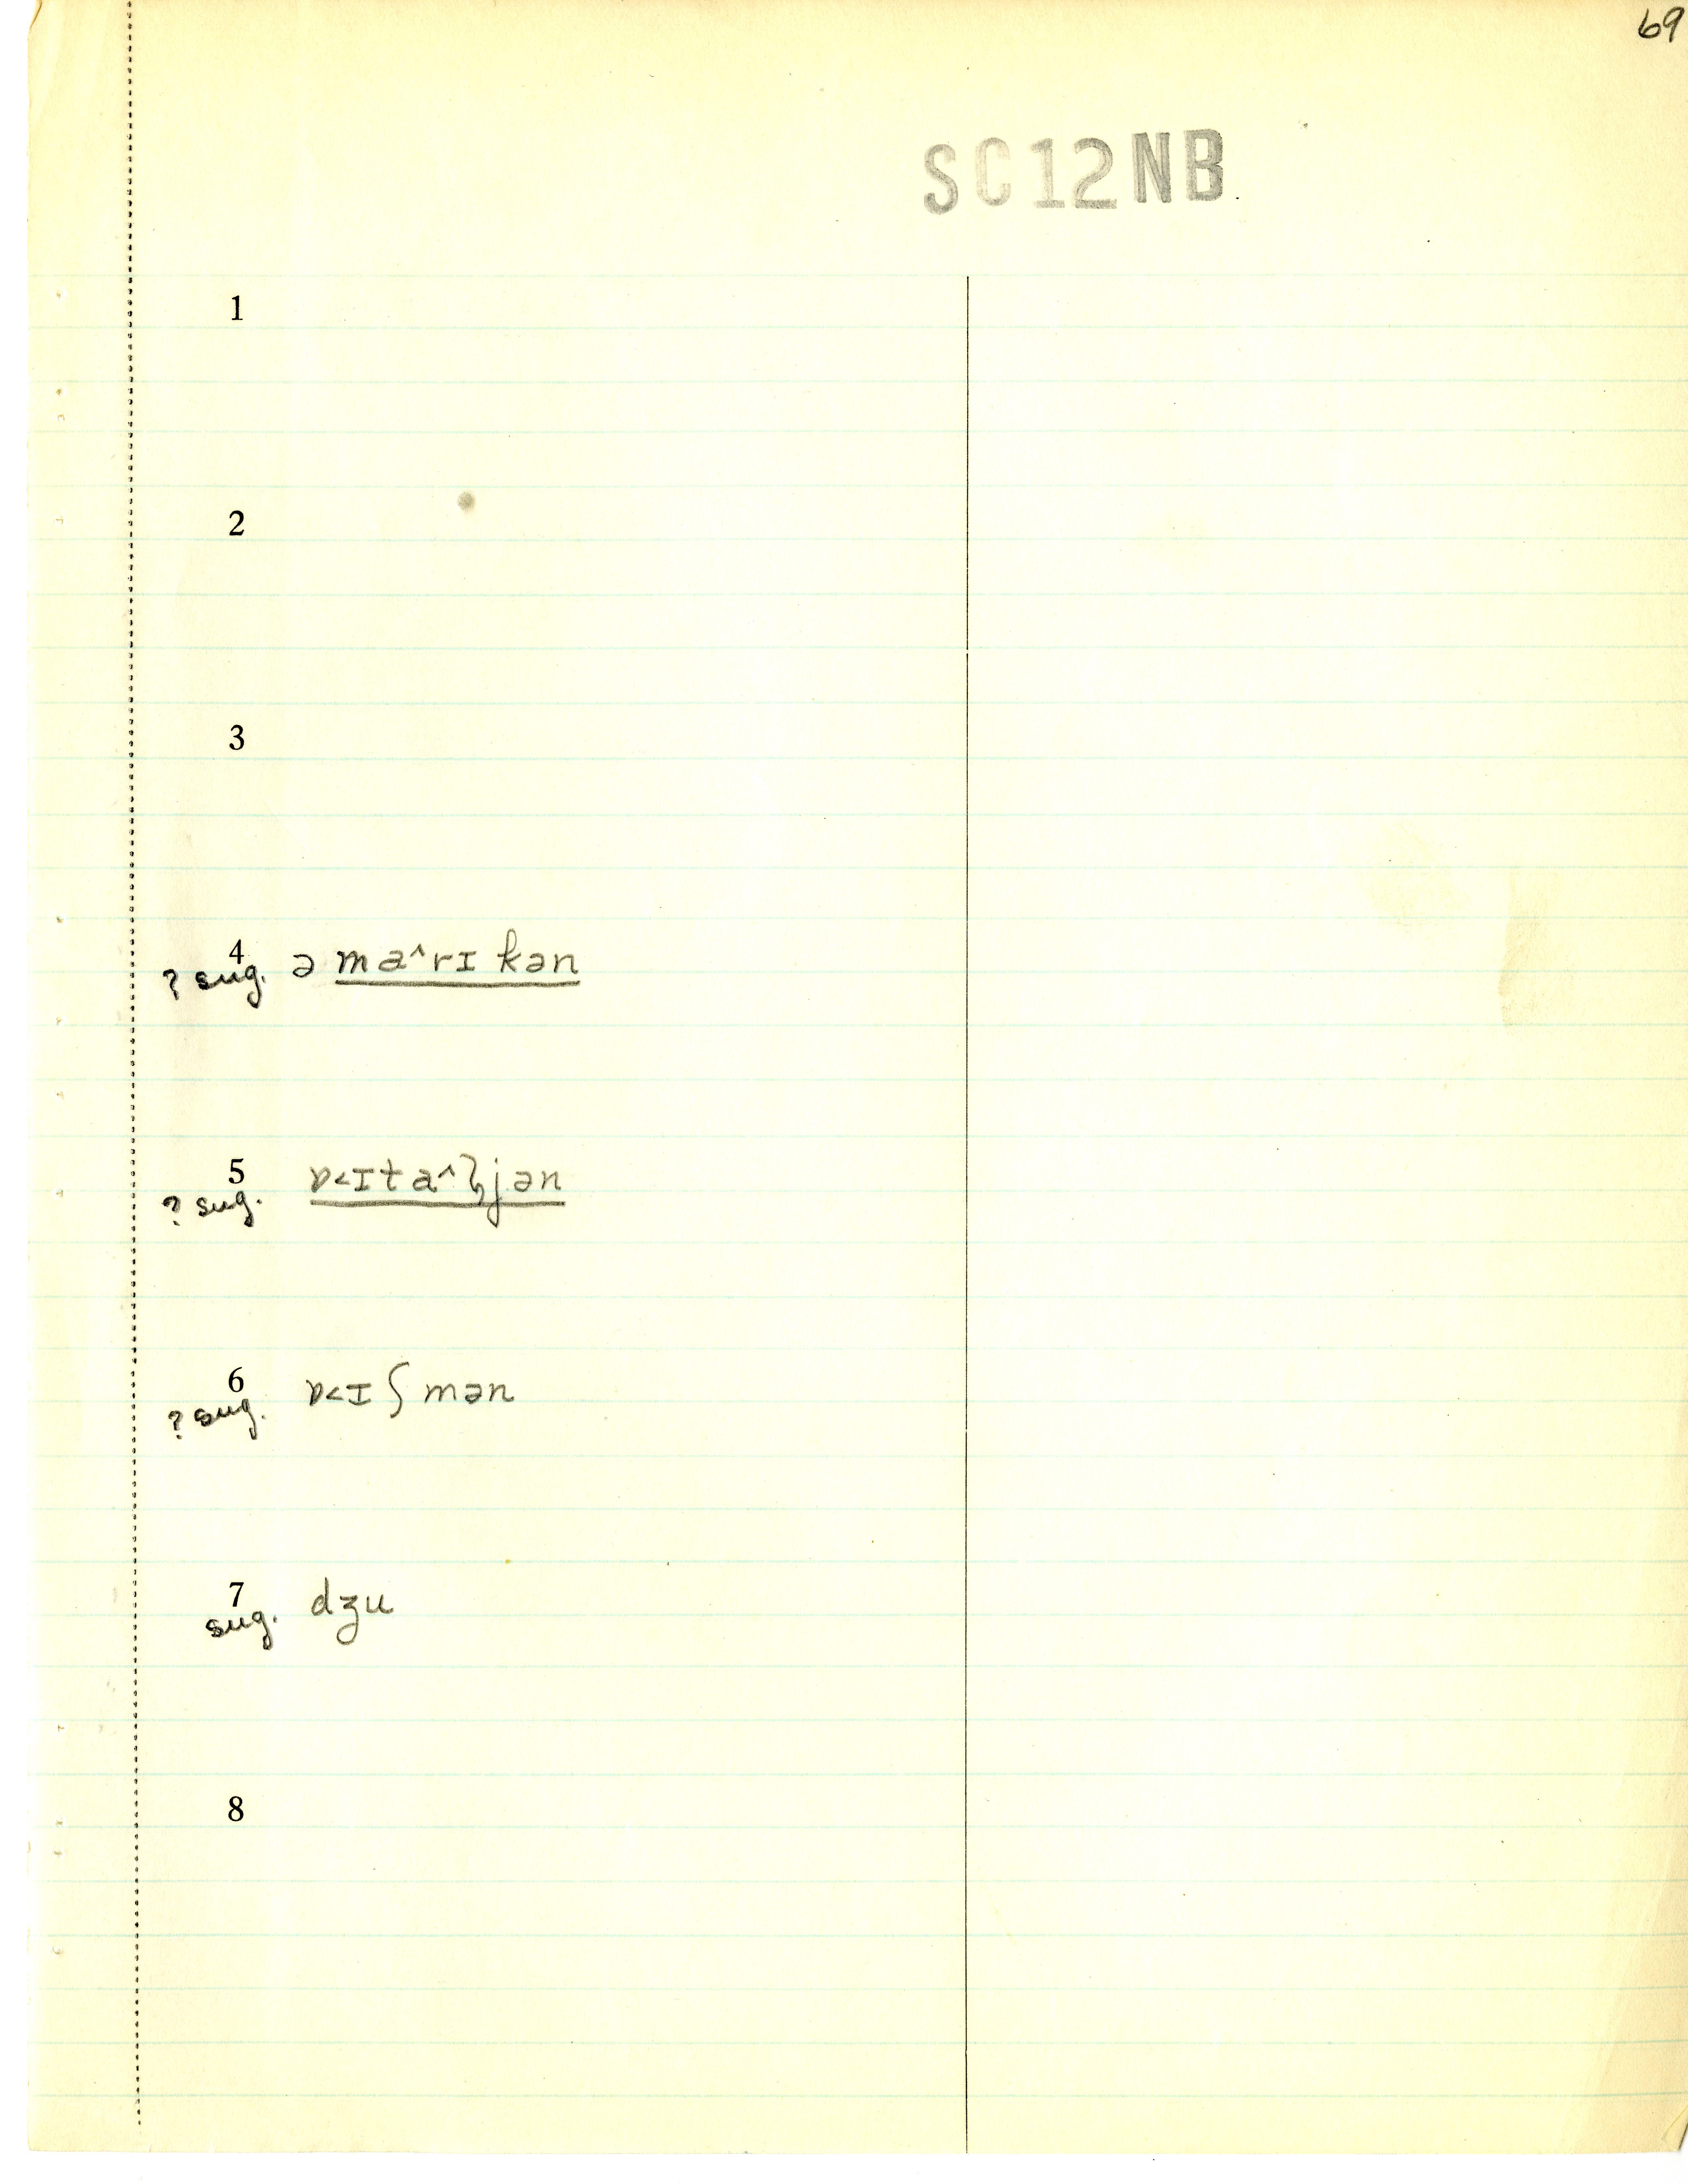 69
SC12NB
1
2
3
4 ə ma^rɪkən
? sug.
5 ɒ<ɪta^ɮjən
? sug.
6 ɒ<ɪʃmən
? sug.
7 dʒu
sug.
8